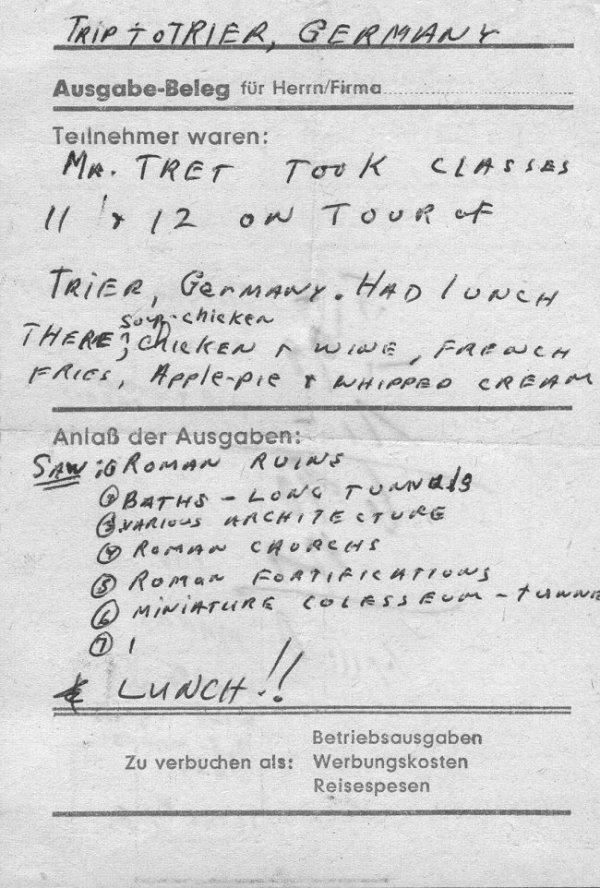 TRIP to TRIER, GERMANY
Ausgabe-Beleg für Herrn/Firma
Teilnehmer waren:
MR. TRET TOOK CLASSES
11 & 12 ON TOUR of
TRIER, GERMANY. HAD LUNCH
soup-chicken
THERE, CHICKEN & WINE, FRENCH
FRIES, Apple-pie & WHIPPED CREAM
Anlaß der Ausgaben:
SAW: ① ROMAN RUINS
② BATHS - LONG TUNNELS
③ VARIOUS ARCHITECTURE
④ ROMAN CHURCHS
⑤ ROMAN FORTIFICATIONS
⑥ MINIATURE COLESSEUM - TUNNE
⑦ 1
& LUNCH!!
Betriebsausgaben
Zu verbuchen als: Werbungskosten
Reisespesen